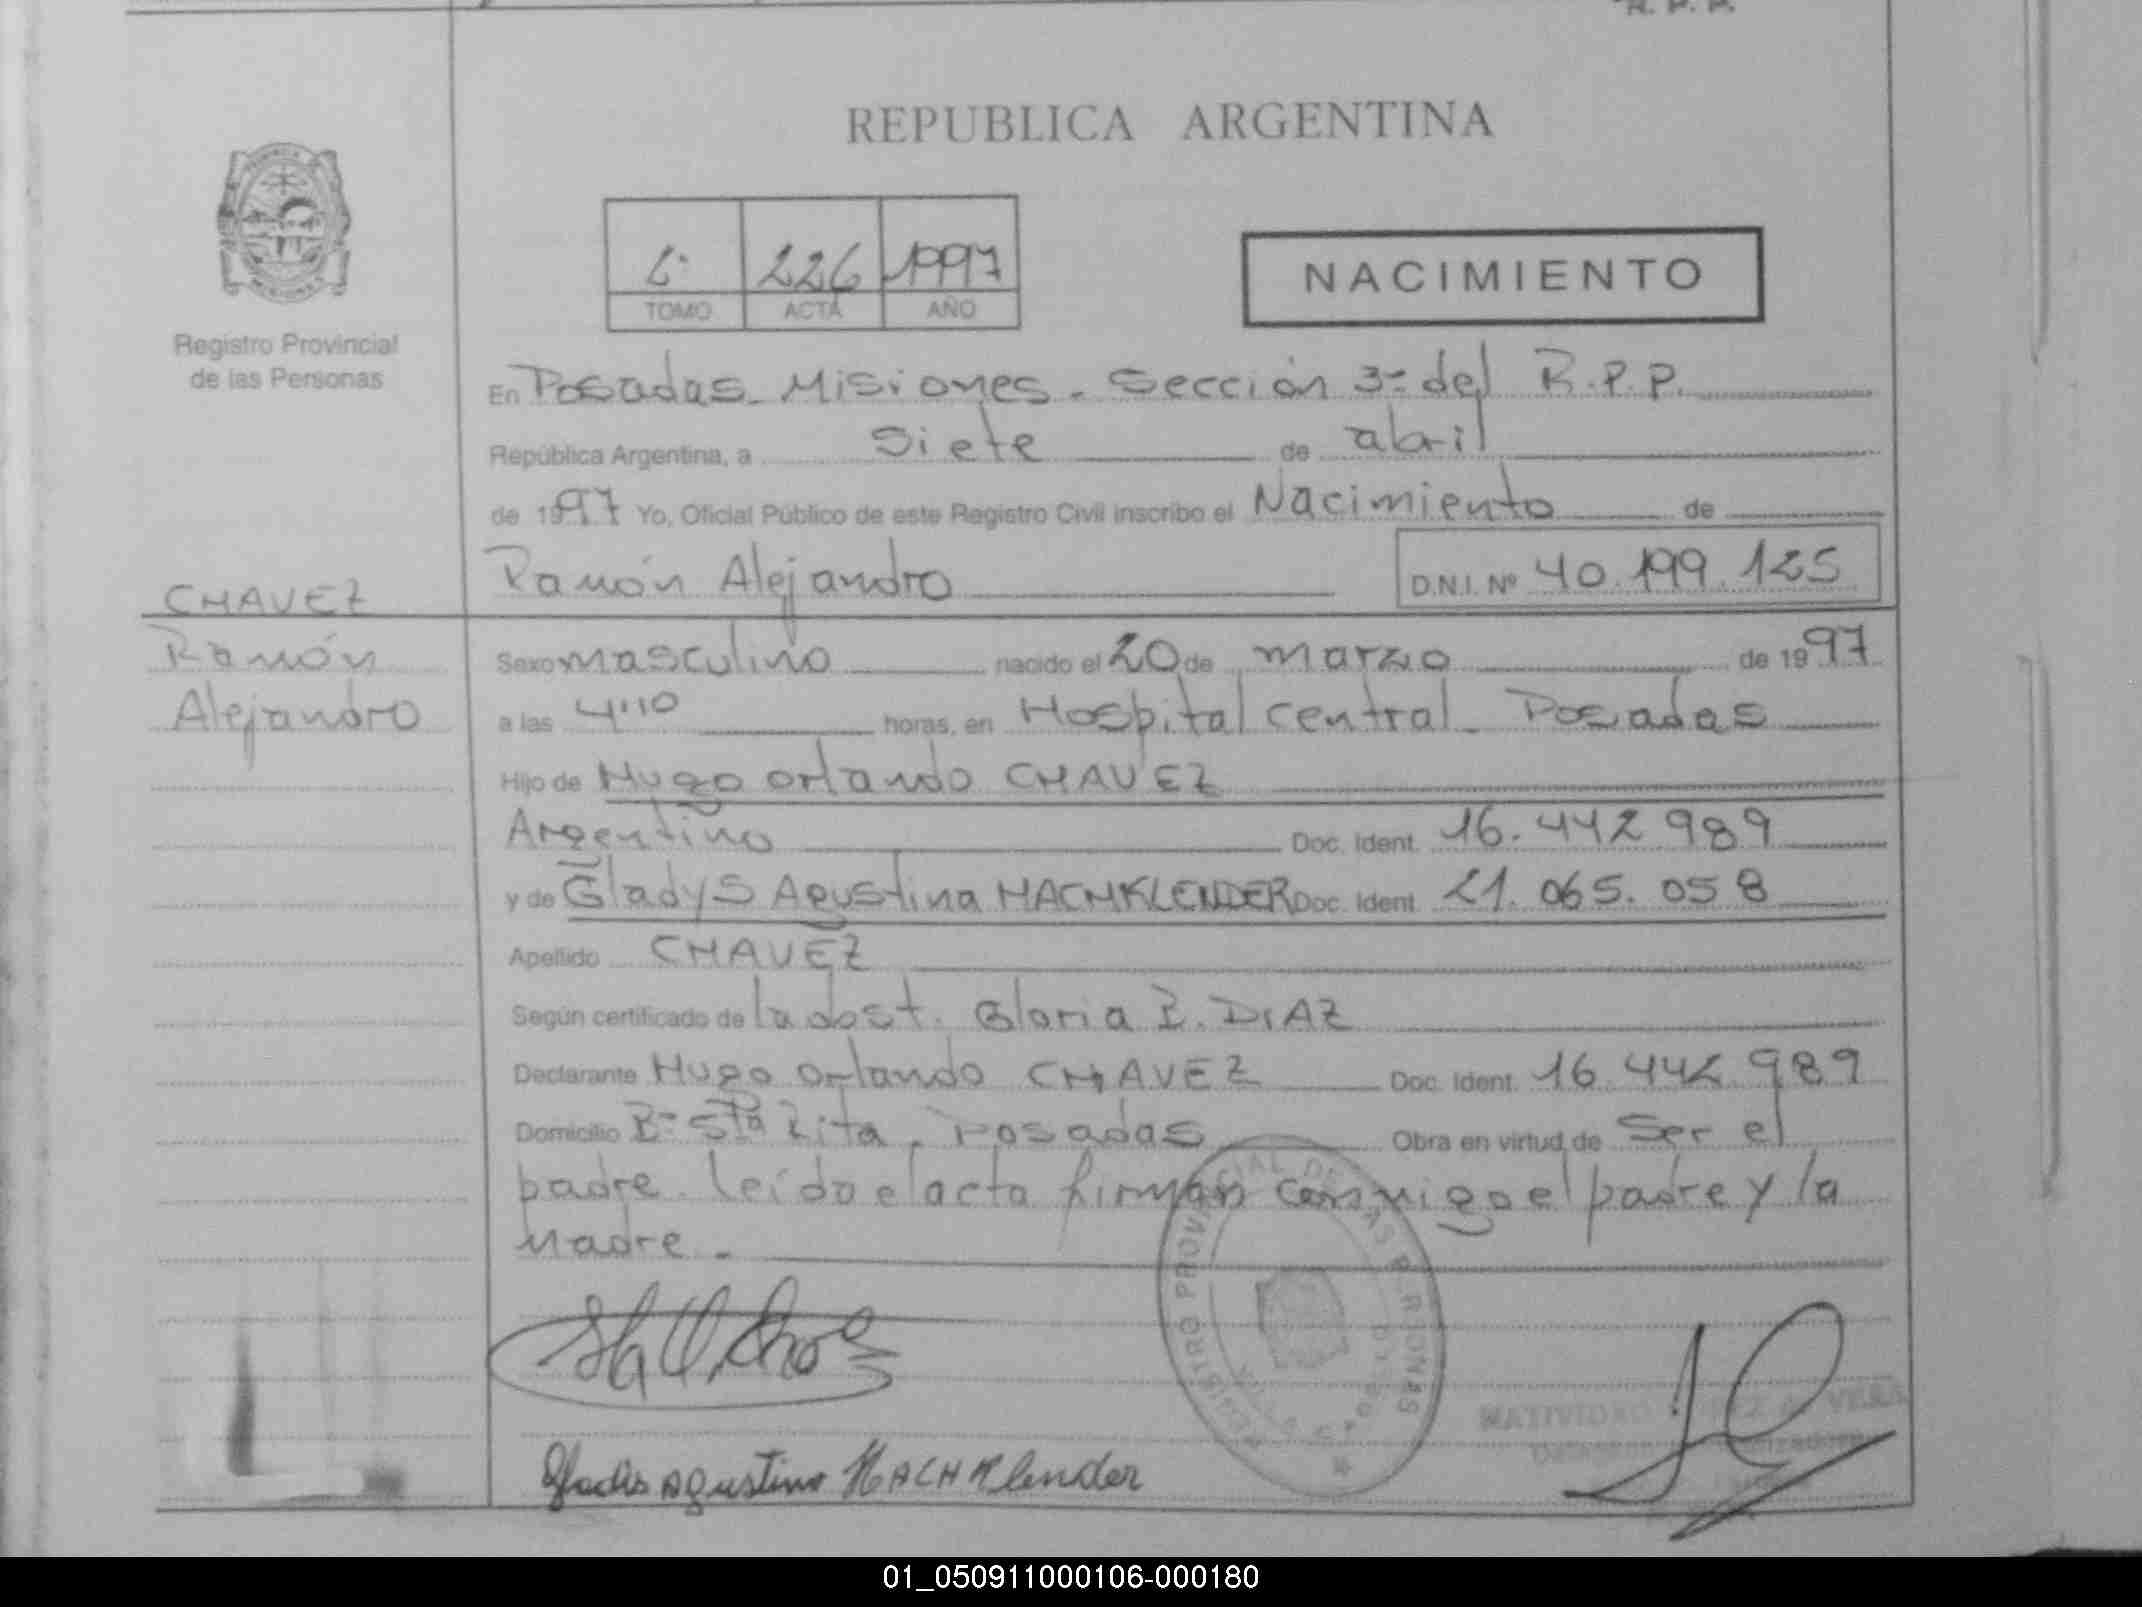 R. P. P.
REPUBLICA ARGENTINA
226 1997
TOMO ACTA AÑO
NACIMIENTO
Registro Provincial
de las Personas
En Posadas - Misiones - Sección 3ª del R.P.P.
República Argentina, a siete de abril
de 1997 Yo, Oficial Público de este Registro Civil inscribo el Nacimiento de
Ramón Alejandro D.N.I. Nº 40.199.125
CHAVEZ
Ramón
Alejandro
Sexo masculino nacido el 20 de marzo de 1997
a las 4'10 horas, en Hospital central - Posadas
Hijo de Hugo Orlando CHAVEZ
Argentino Doc. Ident. 16.442.989
y de Gladys Agustina HACHKLENDER Doc. Ident. 21.065.058
Apellido CHAVEZ
Según certificado de la obst. Gloria DIAZ
Declarante Hugo Orlando CHAVEZ Doc. Ident. 16.442.989
Domicilio Bº Sta Rita, Posadas Obra en virtud de ser el
padre. leido el acta firman conmigo el padre y la
madre -
REGISTRO PROVINCIAL DE LAS PERSONAS
Gladis Agustina HACHKlender
01_050911000106-000180